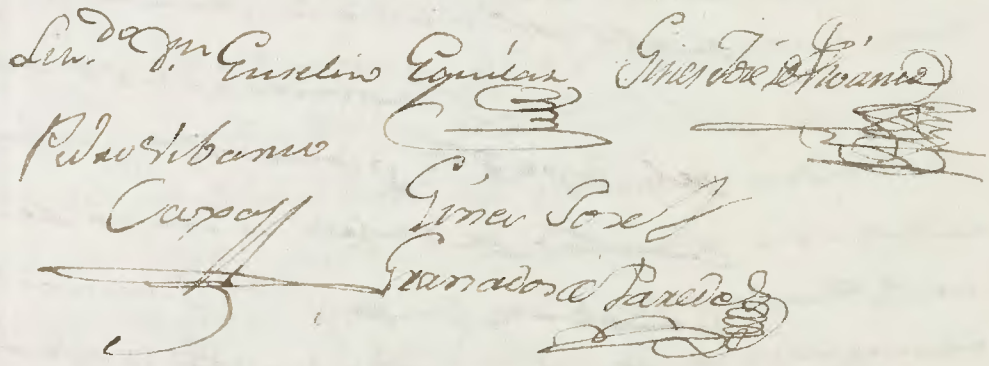 Lizn.do Dn. Euselino Eguilaz
Gines José de Vivanco
Pedro Vibanco
Caxpa
Gines Josef
Granados de Paredes